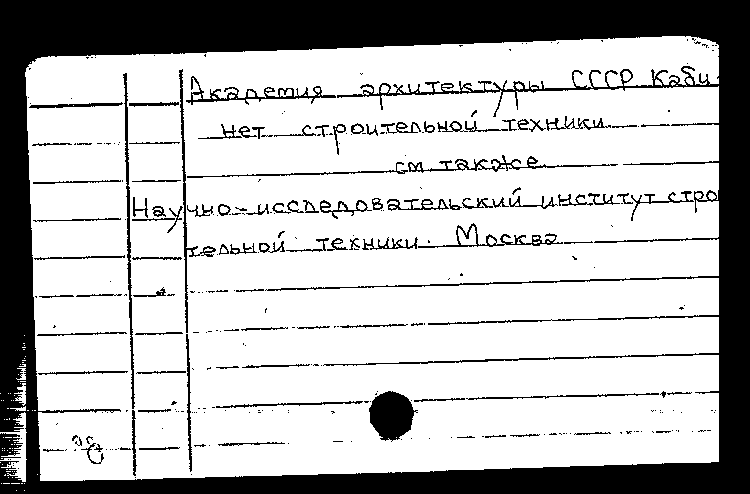 Академия архитектуры СССР Каби-
нет строительной техники
см. также
Научно-исследовательский институт строи
тельной техники. Москва